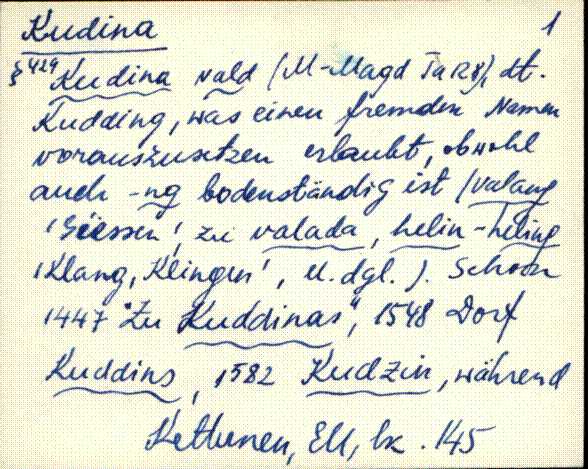 Kudina 1
§ 429 Kudina vald (M-Magd TaR8), dt.
Kudding, was einen fremden Namen
vorauszusetzen erlaubt, obwohl
auch -ng bodenständig ist (valang
'Giessen', zu valada, helin - heling
'Klang, Klingen', u. dgl.). Schon
1447 "Zu Kuddinas", 1548 Dorf
Kuddins, 1582 Kudzin, während
Kettunen, EM, lk. 145